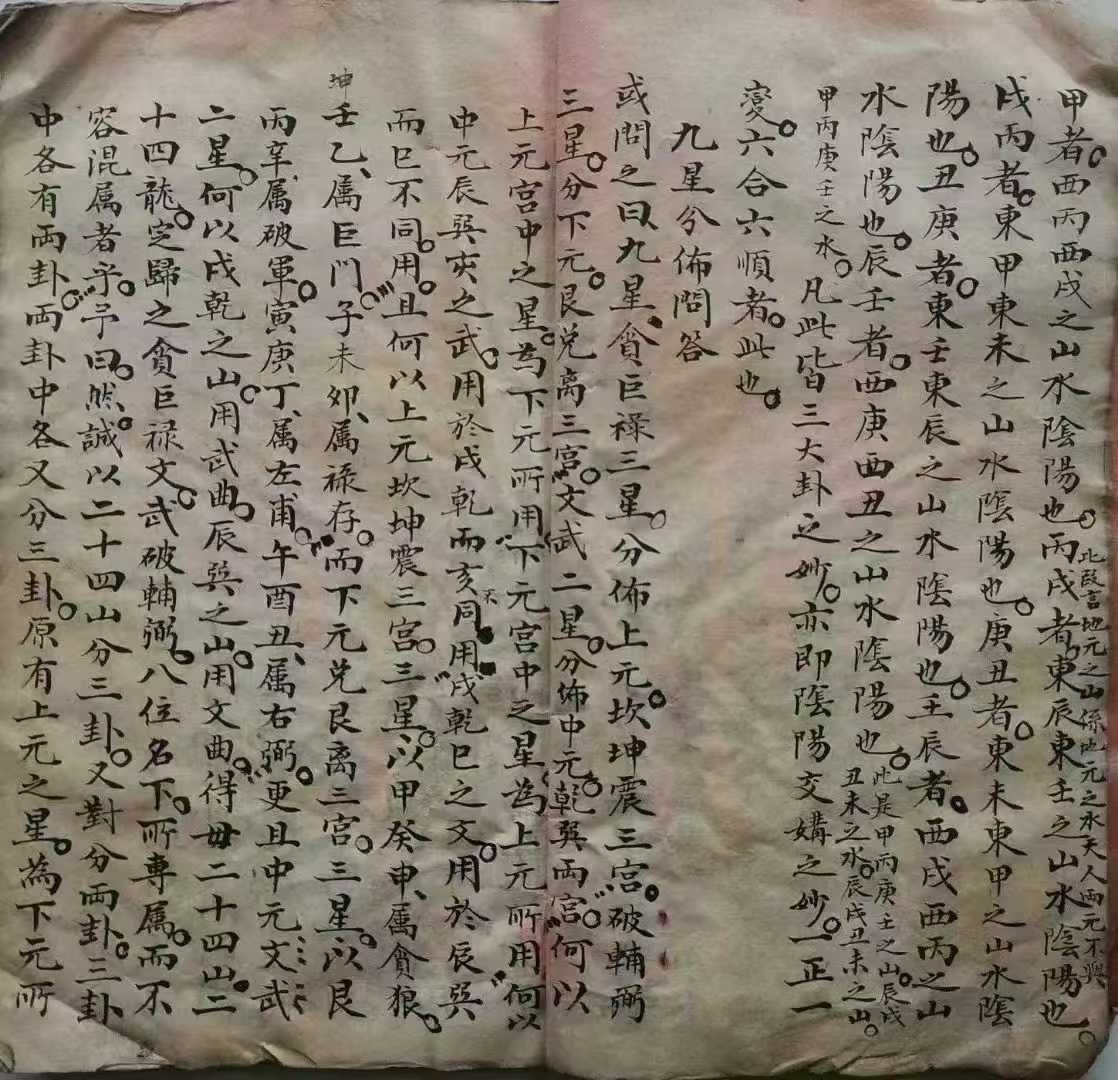 甲者。西丙西戌之山水陰陽也。丙戌者。東辰東壬之山水陰陽也。
此段言地元之山係地元之水天人兩元不與
戌丙者。東甲東未之山水陰陽也。庚丑者。東未東甲之山水陰
陽也。丑庚者。東壬東辰之山水陰陽也。壬辰者。西戌西丙之山
水陰陽也。辰壬者。西庚西丑之山水陰陽也。
此是甲丙庚壬之山。辰戌
丑未之水。辰戌丑未之山。
甲丙庚壬之水。凡此皆三大卦之妙。亦即陰陽交媾之妙。一正一
變。六合六順者。此也。
九星分佈問答
或問之曰、九星、貪巨祿三星。分佈上元。坎坤震三宮。破輔弼
三星。分下元。艮兌离三宮。文武二星。分佈中元。乾巽兩宮。何以
上元宮中之星。為下元所用。下元宮中之星。為上元所用。何以
中元辰巽亥之武。用於戌乾而亥不同用。戌乾巳之文。用於辰巽
而巳不同。用。且何以上元坎坤震三宮。三星。以甲癸申、属貪狼。
坤
壬乙、属巨門、子未卯、属祿存。而下元兌艮离三宮。三星。以艮
丙辛、属破軍。寅庚丁、属左甫。午酉丑、属右弼。更且中元文武
二星。何以戌乾之山。用武曲。辰巽之山。用文曲。得毋二十四山。二
十四龍。定歸之貪巨祿文。武破輔弼。八位名下。所專属。而不
容混属者乎。予曰。然。誠以二十四山分三卦。又對分兩卦。三卦
中各有兩卦。兩卦中各又分三卦。原有上元之星。為下元所